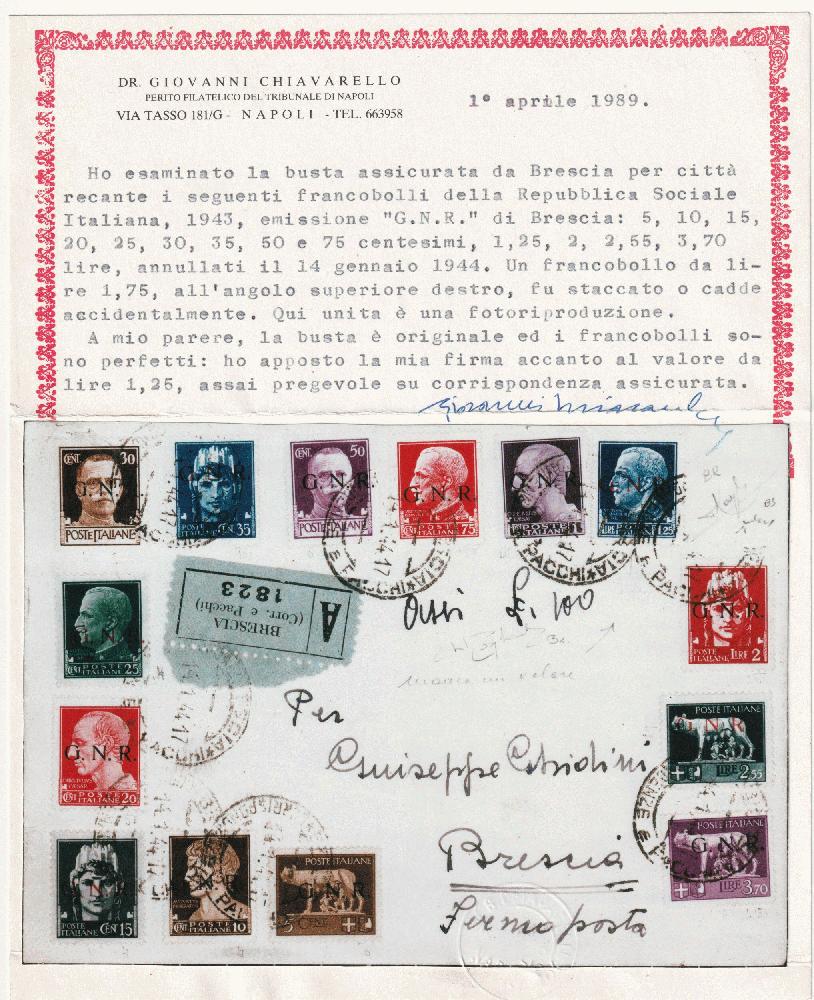 DR. GIOVANNI CHIAVARELLO
PERITO FILATELICO DEL TRIBUNALE DI NAPOLI
VIA TASSO 181/G - NAPOLI - TEL. 663958
1° aprile 1989.
Ho esaminato la busta assicurata da Brescia per città
recante i seguenti francobolli della Repubblica Sociale
Italiana, 1943, emissione "G.N.R." di Brescia: 5, 10, 15,
20, 25, 30, 35, 50 e 75 centesimi, 1,25, 2, 2,55, 3,70
lire, annullati il 14 gennaio 1944. Un francobollo da li-
re 1,75, all'angolo superiore destro, fu staccato o cadde
accidentalmente. Qui unita è una fotoriproduzione.
A mio parere, la busta è originale ed i francobolli so-
no perfetti: ho apposto la mia firma accanto al valore da
lire 1,25, assai pregevole su corrispondenza assicurata.
CENT. 30
G.N.R.
POSTE ITALIANE
G.N.R.
CENT 35
CENT. 50
G.N.R.
POSTE ITALIANE
G.N.R.
CENT 75
G.N.R.
G.N.R.
LIRE 1,25
BRESCIA
(Corr. e Pacchi)
1823
A
Assi £. 100
G.N.R.
POSTE ITALIANE
LIRE 2
POSTE ITALIANE
CENT 25
manca un valore
Per
Giuseppe
G.N.R.
POSTE ITALIANE
CENT 20
POSTE ITALIANE
G.N.R.
LIRE 2,55
Brescia
Fermo posta
POSTE ITALIANE
CENT 15
POSTE ITALIANE
CENT 10
POSTE ITALIANE
G.N.R.
5 CENT
POSTE ITALIANE
G.N.R.
LIRE 3,70